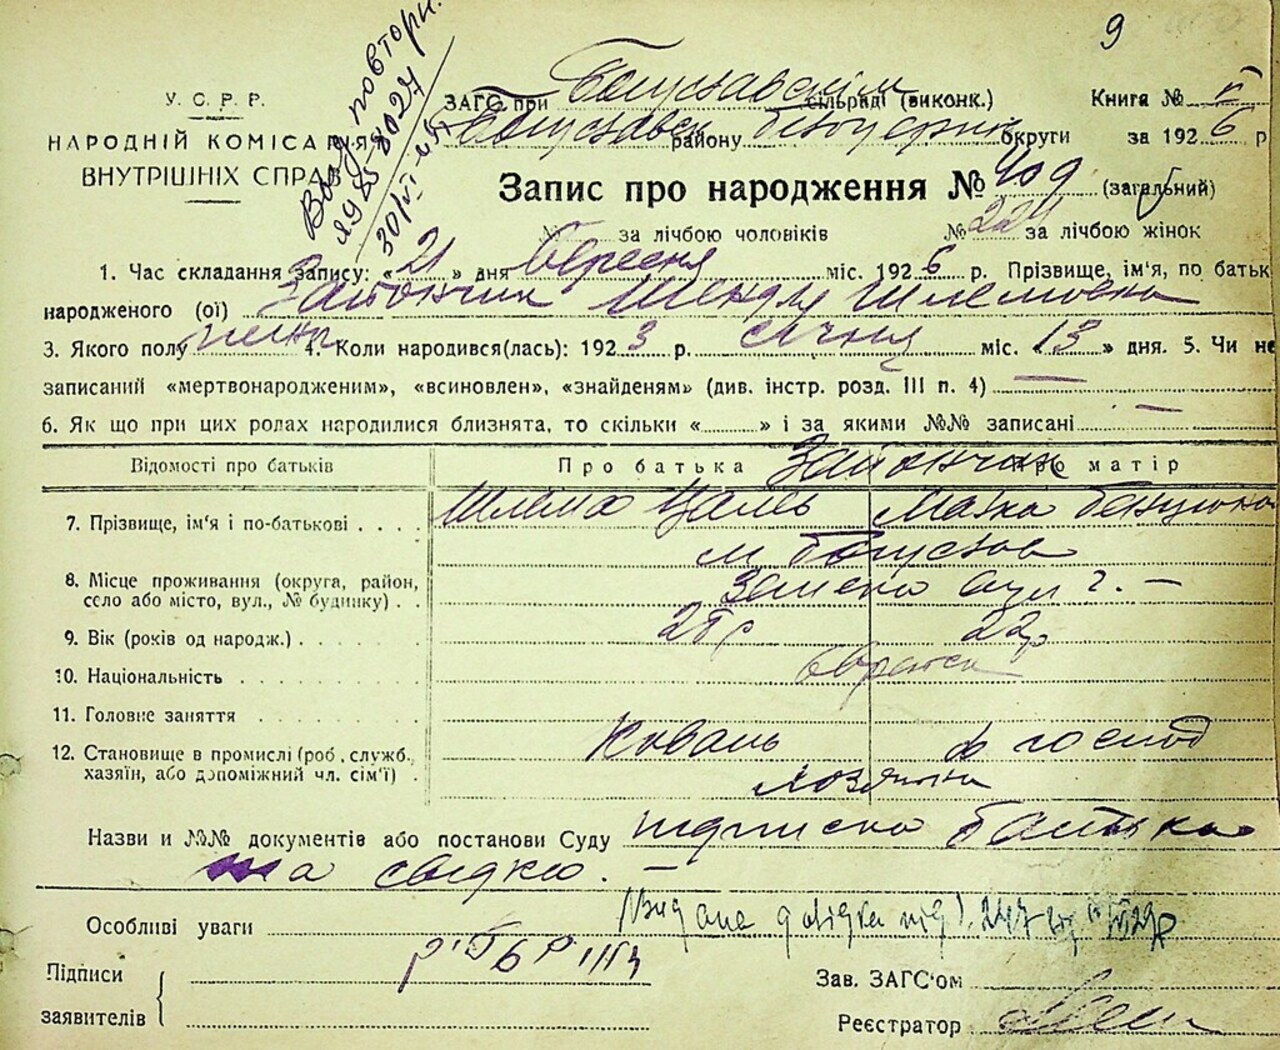 9
Выд. повторн.
ЗАГС при Богуславскім сільраді (виконк.) Книга №
У. С. Р. Р.
Богуславск району Білоцерків округи за 1926 р
НАРОДНІЙ КОМІСАРІЯТ
ВНУТРІШНІХ СПРАВ
Запис про народження № 409 (загальний)
№ за лічбою чоловіків № 224 за лічбою жінок
1. Час складання запису: «21» дня Вересня міс. 1926 р. Прізвище, ім'я, по батьк
народженого (ої) Зайончик Шендля Шлемовна
3. Якого полу жіноч 4. Коли народився(лась): 1923 р. січня міс. «13» дня. 5. Чи не
записаний «мертвонародженим», «всиновлен», «знайденям» (див. інстр. розд. III п. 4) —
6. Як що при цих ролах народилися близнята, то скільки «........» і за якими №№ записані —
Відомості про батьків Про батька Зайончик Про матір
7. Прізвище, ім'я і по-батькові Шлема Цаль Малка
м Богуслав
8. Місце проживання (округа, район,
село або місто, вул., № будинку)
9. Вік (років од народж.) 22р
10. Національність Євреїска
11. Головне заняття
12. Становище в промислі (роб., служб.
хазяїн, або допоміжний чл. сім'ї) Коваль господ
Назви и №№ документів або постанови Суду підписка батька
та свідков. —
Особливі уваги Видана довідка під ч. 247
Підписи
заявителів
Зав. ЗАГС'ом
Реєстратор